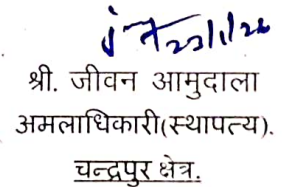 श्री. जीवन आमुदाला
अमलाधिकारी(स्थापत्य).
चन्द्रपुर क्षेत्र.